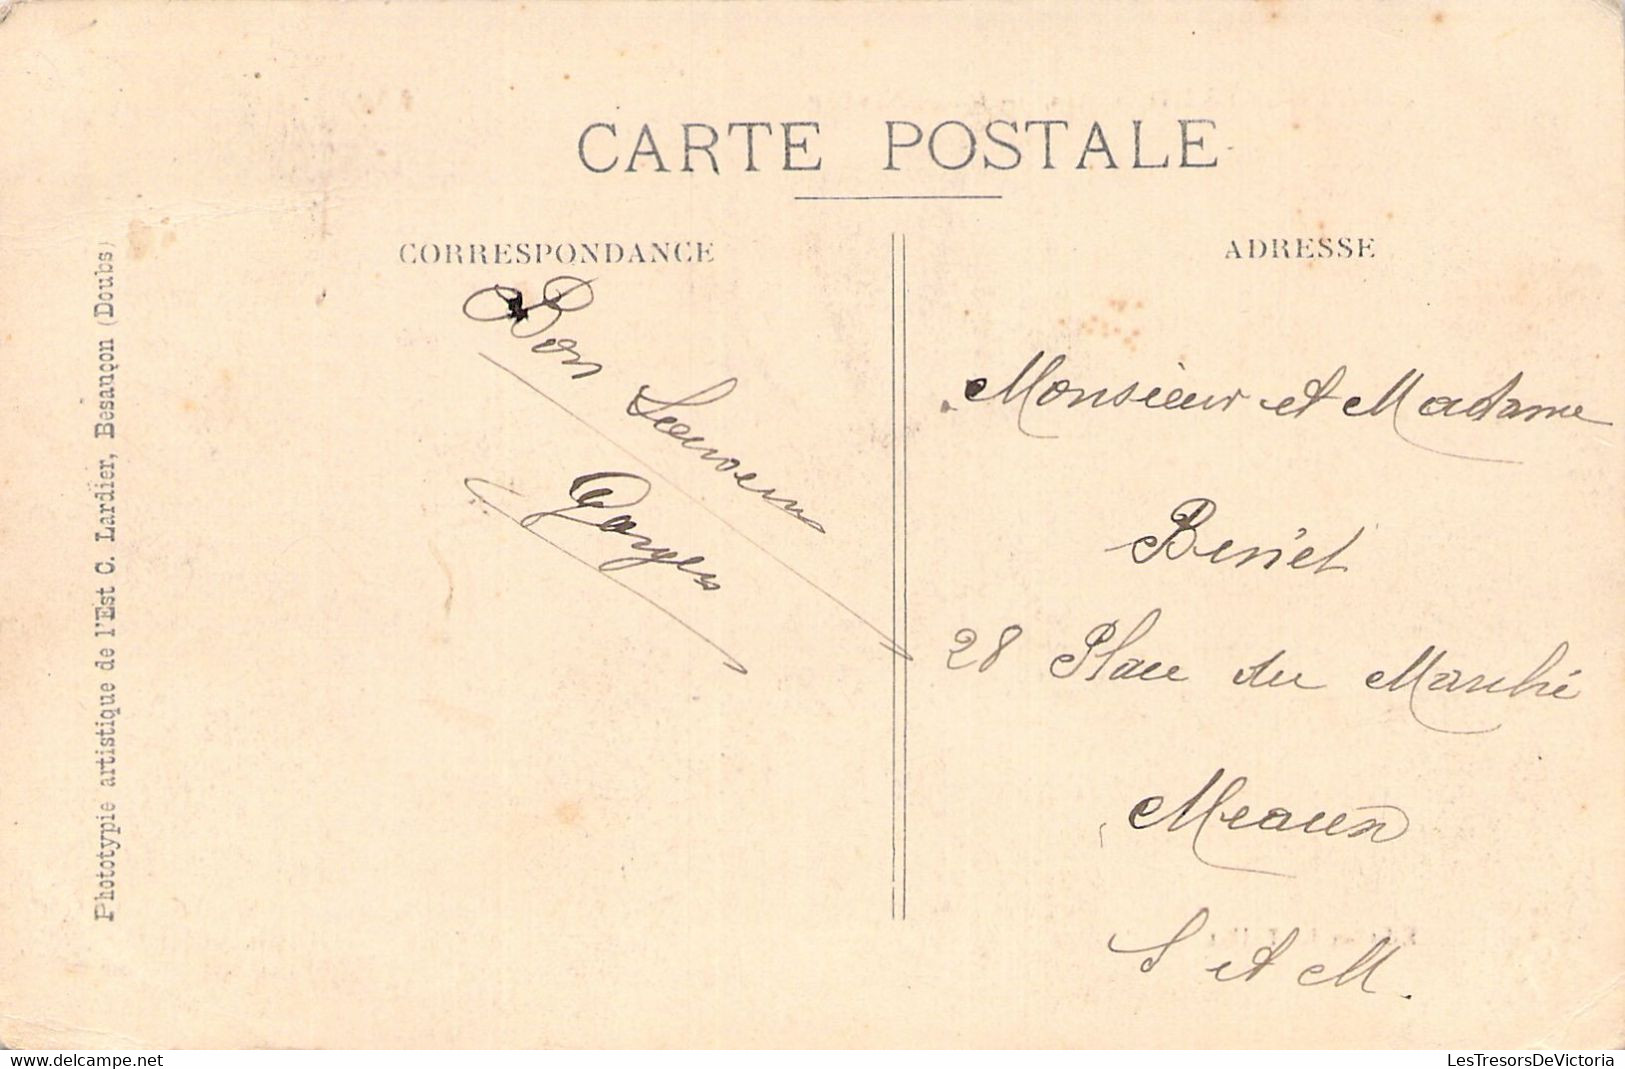 CARTE POSTALE
CORRESPONDANCE
ADRESSE
Bon Souvenir
Monsieur et Madame
28 Place du Marché
Meaux
S et M.
Phototypie artistique de l'Est C. Lardier, Besançon (Doubs)
LesTresorsDeVictoria
delcampe.net